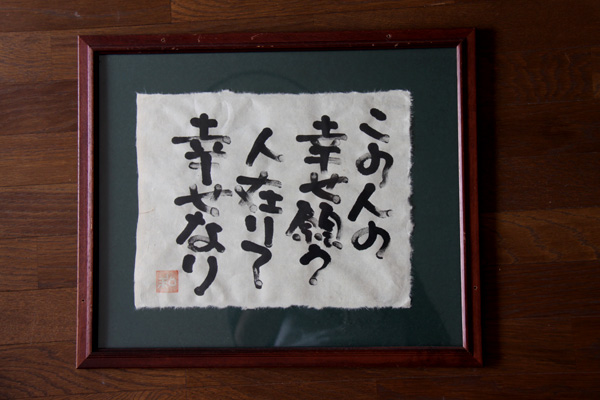 この人の
幸せ願う
人在りて
幸せなり